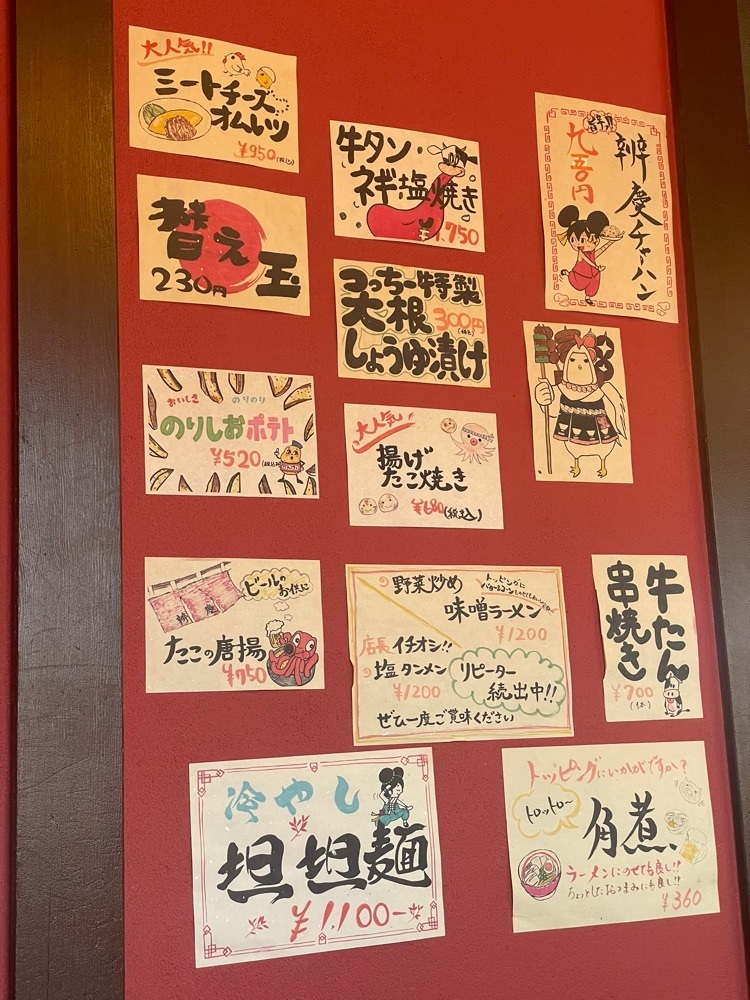 大人気!!
ミートチーズ
オムレツ
¥950(税込)
替え玉
230円
おいしさ のりのり
のりしおポテト
¥520(税込)
ビールの
お供に
たこの唐揚
¥750
牛タン・
ネギ塩焼き
¥1,750
こっちー特製
大根 300円
(税込)
しょうゆ漬け
大人気!
揚げ
たこ焼き
¥680(税込)
野菜炒め
トッピングに
味噌ラーメン
¥1200
店長イチオシ!!
塩タンメン
¥1200
リピーター
続出中!!
ぜひ一度ご賞味ください
辨慶チャーハン
九五〇円
牛たん
串焼き
¥700
冷やし
担担麺
¥1100-
トッピングにいかがですか?
トロットロ〜
角煮、
ラーメンにのせても良し!!
ちょっとしたおつまみにも良し!!
¥360